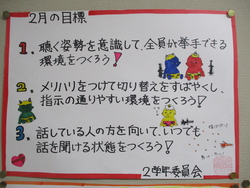 2月の目標
1. 聴く姿勢を意識して、全員が挙手できる
環境をつくろう!
2. メリハリをつけて切り替えをすばやくし、
指示の通りやすい環境をつくろう!
3. 話している人の方を向いて、いつでも
話を聞ける状態をつくろう!
2学年委員会